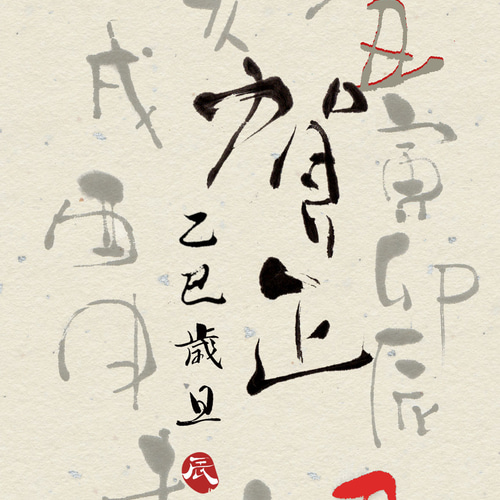 丑寅卯辰
賀正
乙巳歳旦
辰
戌酉申